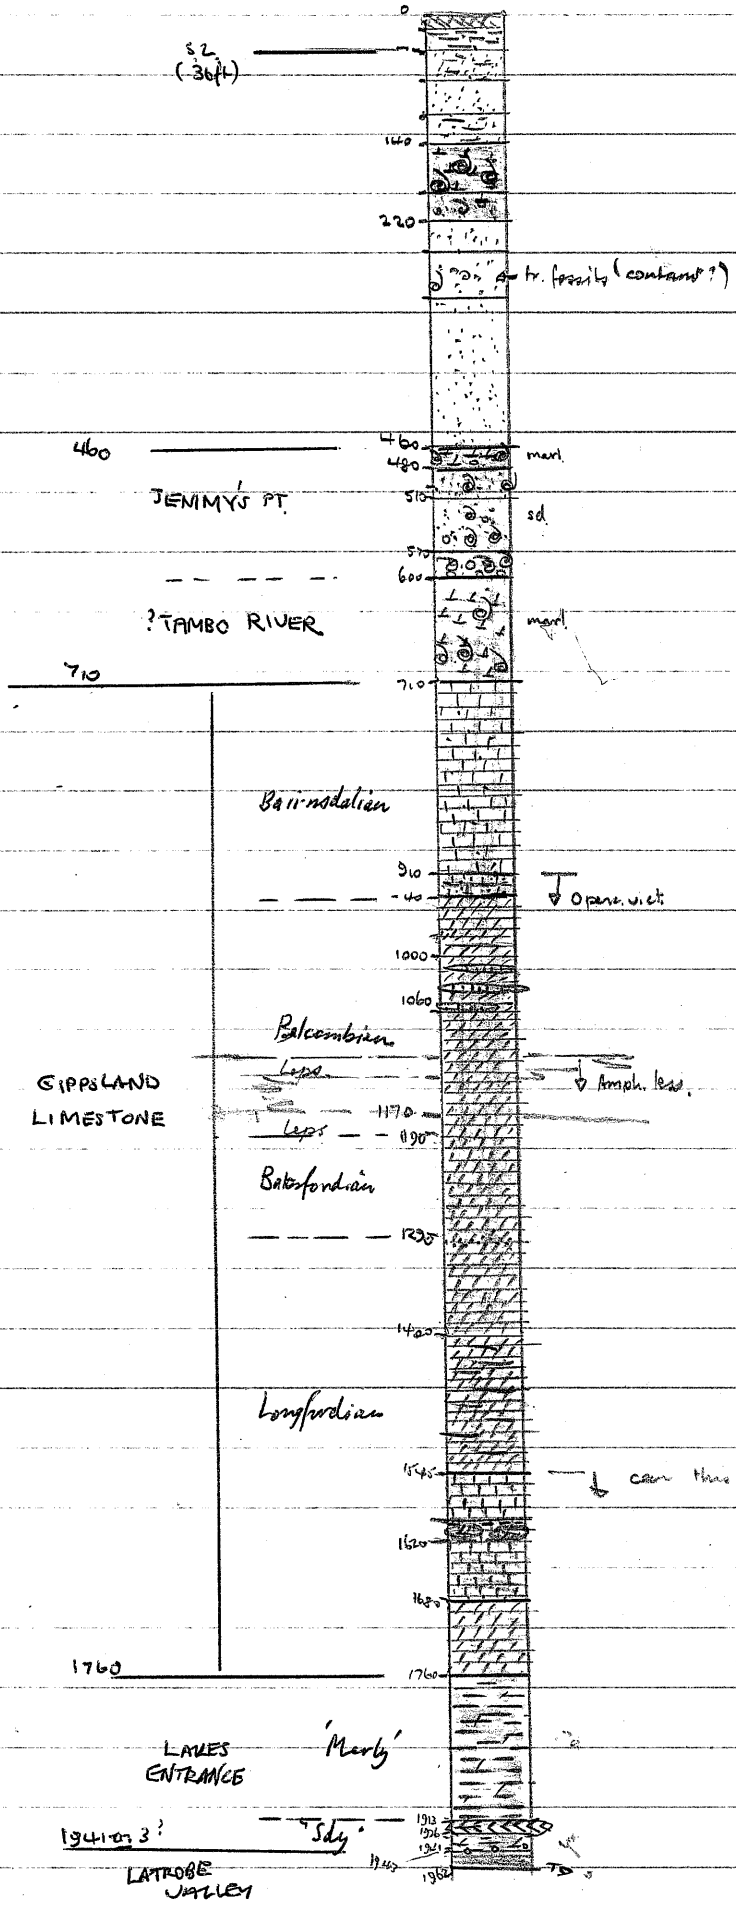 0
S2
(36ft)
140
220
tr. fossils (contam?)
460
460
marl
480
JEMMY'S PT.
510
sd
570
600
?TAMBO RIVER
marl
710
710
Bairnsdalian
910
40
Operc. vict.
1000
1060
Balcombian
Leps
Amph. less.
GIPPSLAND
LIMESTONE
1170
Leps
1190
Batesfordian
1295
1400
Longfordian
1545
1620
1680
1760
1760
LAKES
ENTRANCE
'Marly'
1913
1926
1941 or 3?
'Sdy'
1941
1943
1962
TD
LATROBE
VALLEY